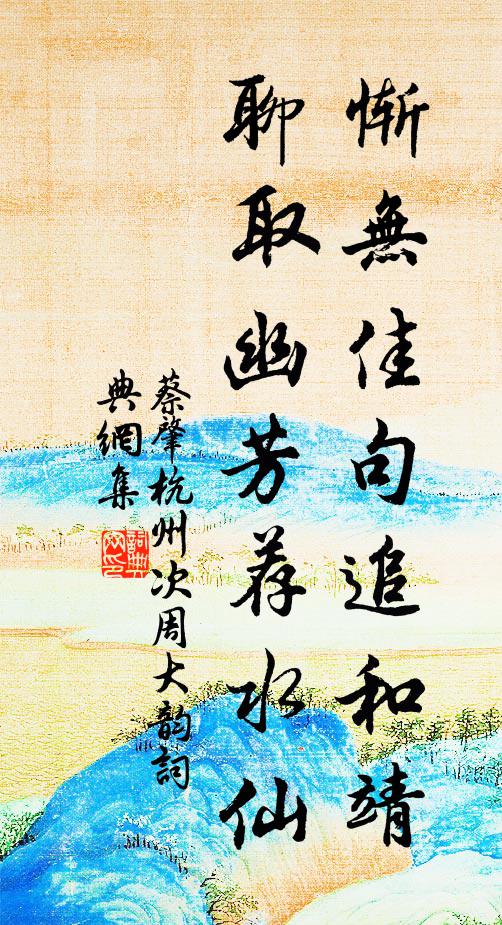 慚無佳句追和靖
聊取幽芳荐水仙
蔡肇杭州次周大韵詞
典網集
詞典
网印